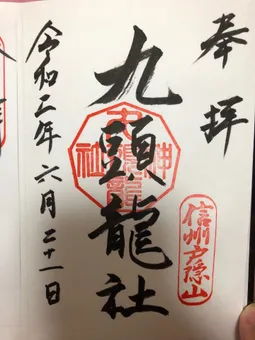 奉拝
信州戸隠山
九頭龍社
令和二年六月二十一日